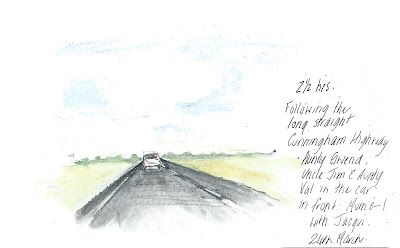 2½ hrs.
Following the
long straight
Cunningham Highway
Aunty Gwend,
Uncle Jim & Aundy
Val in the car
in front - Mum & I
with Jacqui.
24th March.